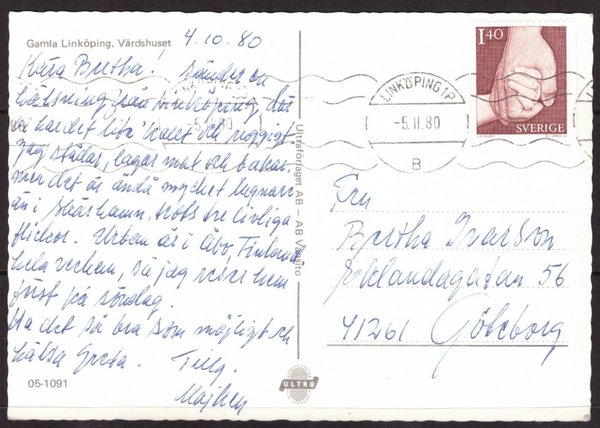 Gamla Linköping, Värdshuset
4.10.80
Kära Bertha! Sänder en
hälsning från Linköping, där
vi har det lite kallt och ruggigt.
Jag städar, lagar mat och bakar.
men det är ändå mycket lugnare
än i Skärhamn, trots tre livliga
flickor. Urban är i Åbo, Finland
hela veckan, så jag reser hem
först på söndag.
Ha det så bra som möjligt och
hälsa Greta. Tillg.
Majken
05-1091
Ultraförlaget AB - AB Vänsjtö
ULTRA
LINKÖPING 1P
-5.11.80
B
1.40
SVERIGE
Fru
Bertha Ivarson
Eklandagatan 56
41261 Göteborg